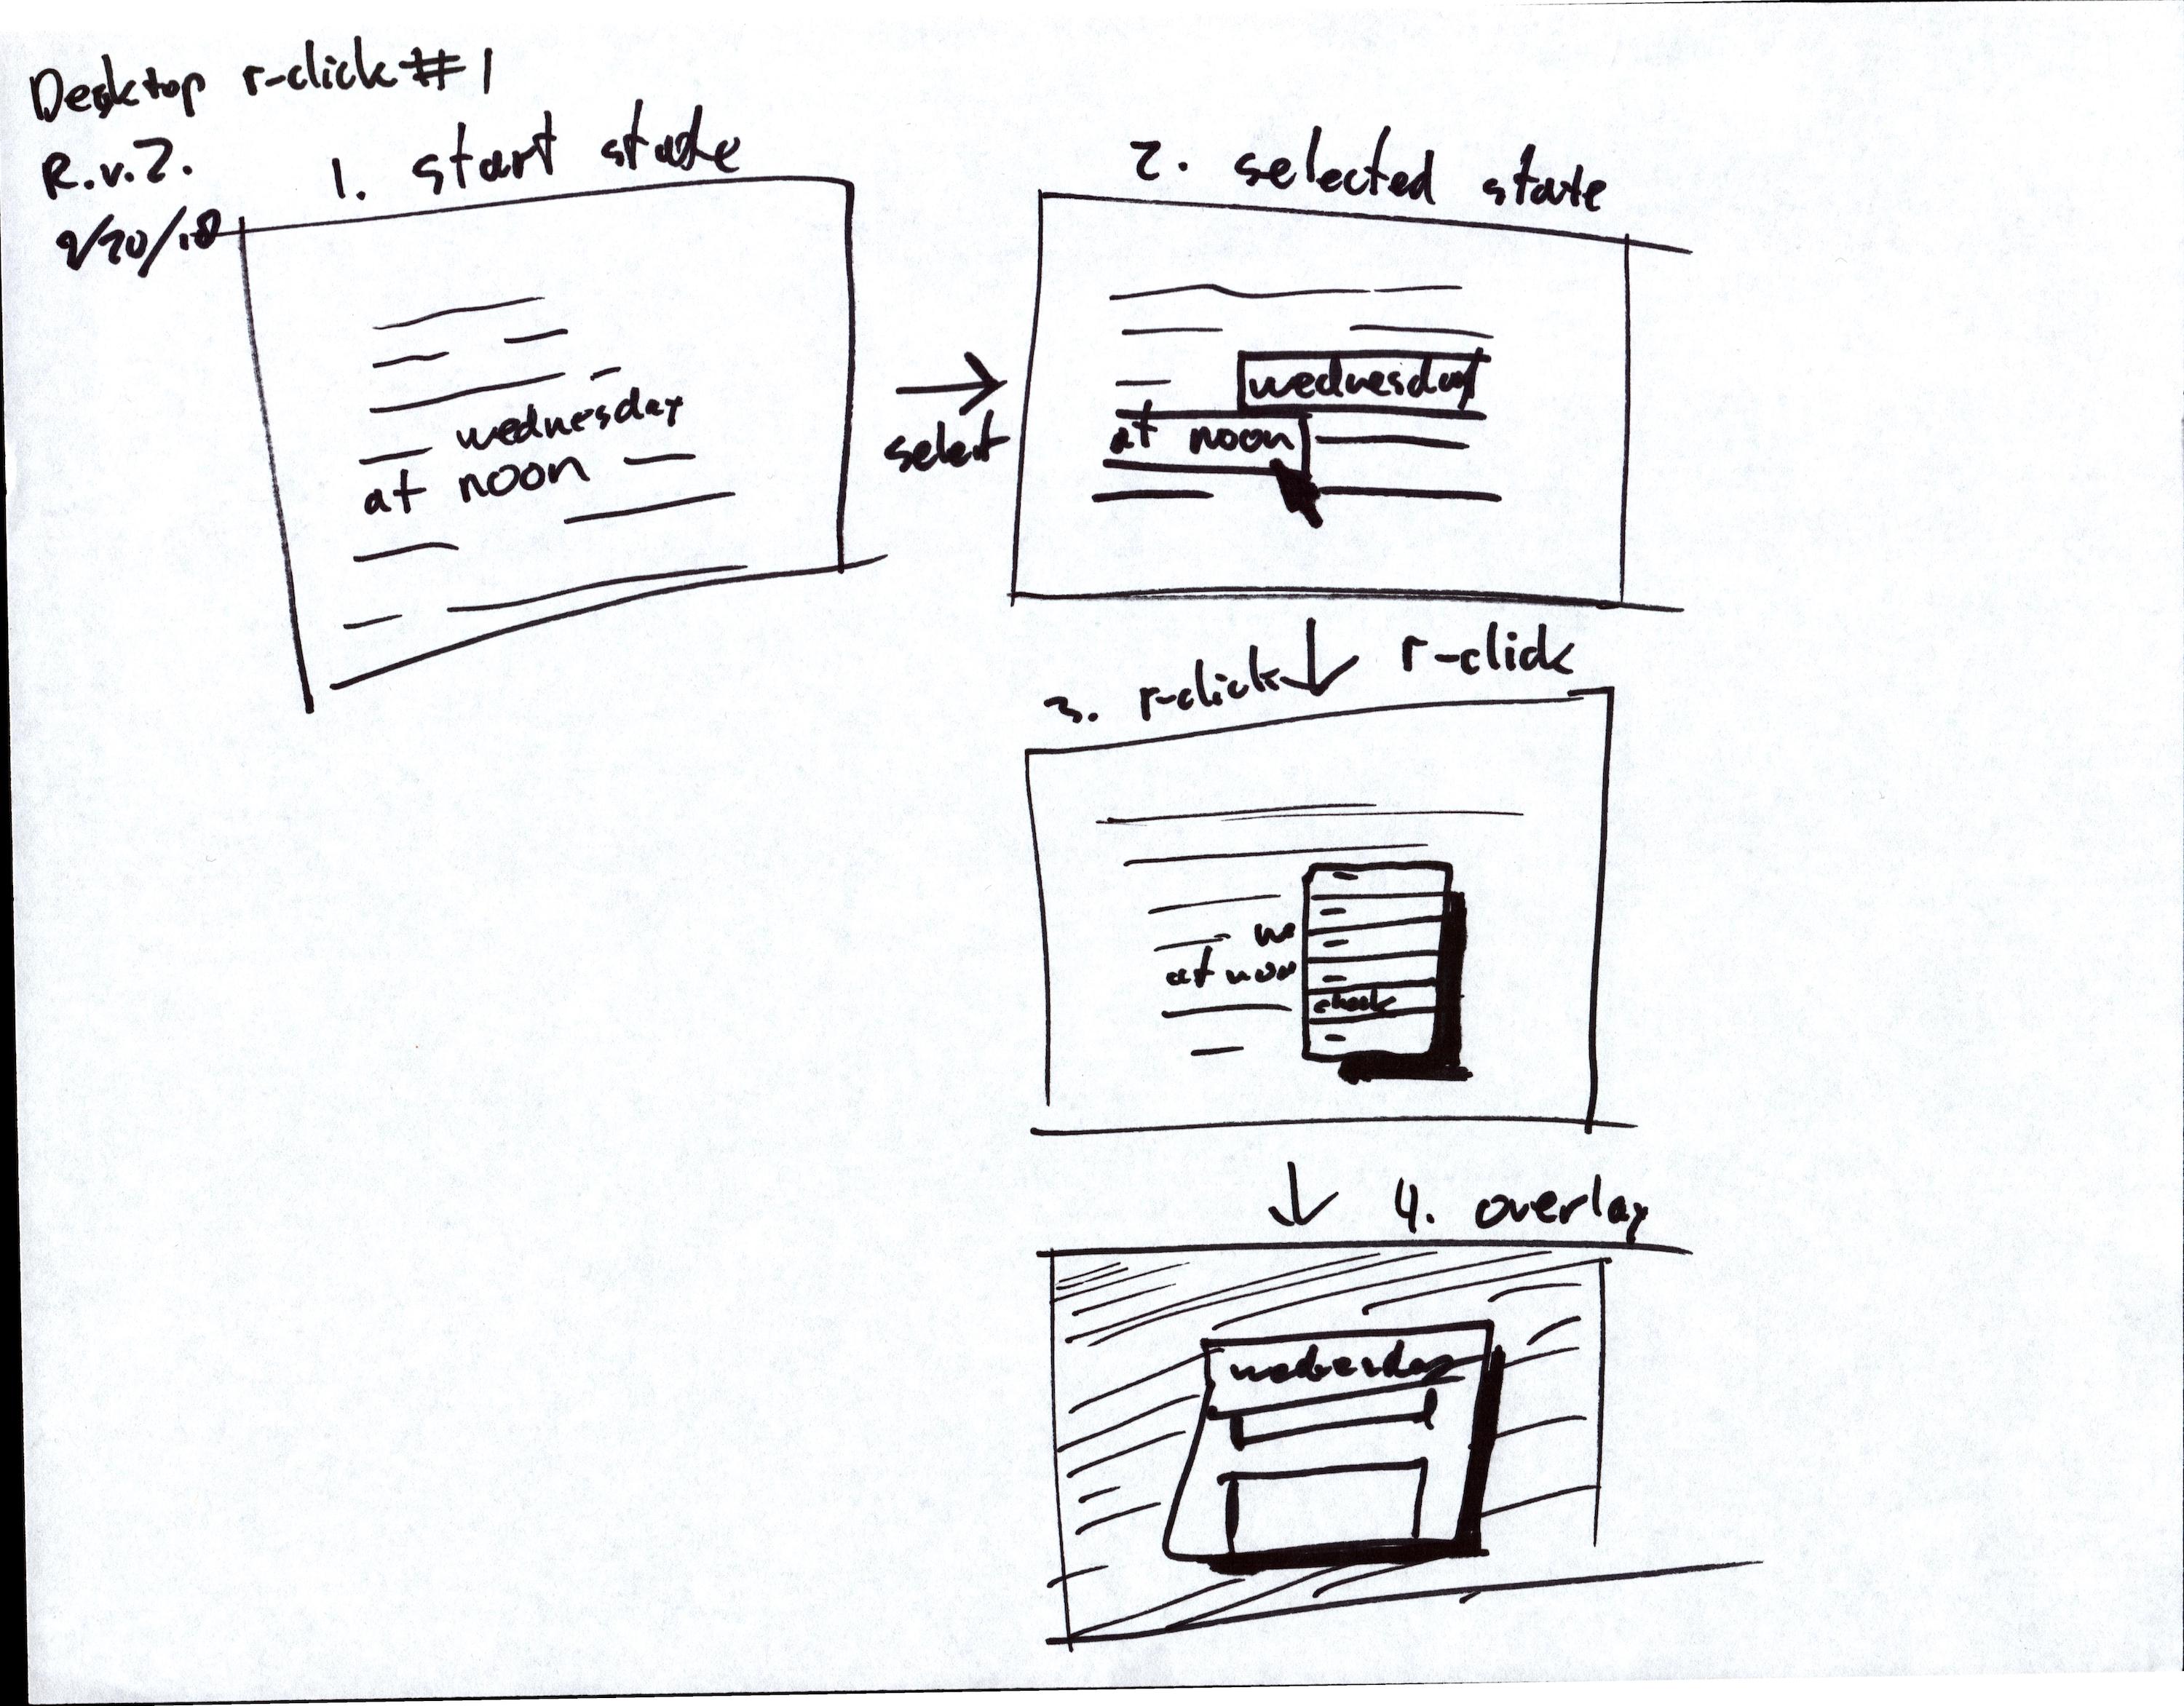 Desktop r-click #1
R.v.2.
9/20/18
1. start state
wednesday
at noon
select
2. selected state
wednesday
at noon
r-click
3. r-click
we
at noo
check
4. overlay
wednesday